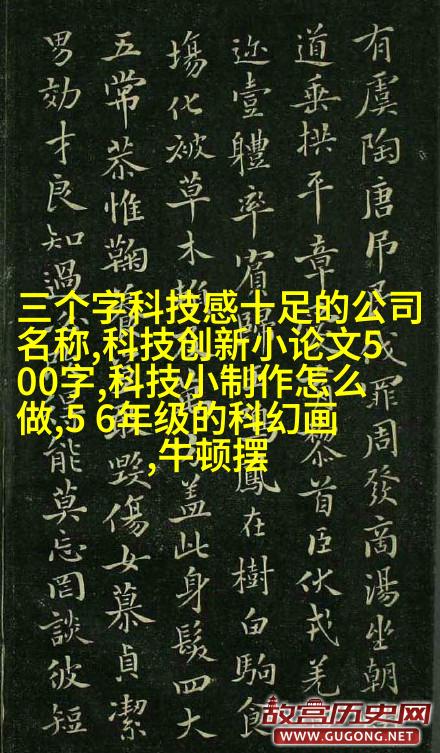 有虞陶唐吊伐罪周發商湯坐朝
道垂拱平章黎首臣伏戎羌
迩壹體率賓歸鳳在樹白駒食
塲化被草木蓋此身髮四大
五常恭惟鞠毀傷女慕貞潔
男効才良知過能莫忘罔談彼短
三个字科技感十足的公司
名称,科技创新小论文5
00字,科技小制作怎么
做,5 6年级的科幻画
,牛顿摆
故宫历史网
WWW.GUGONG.NET